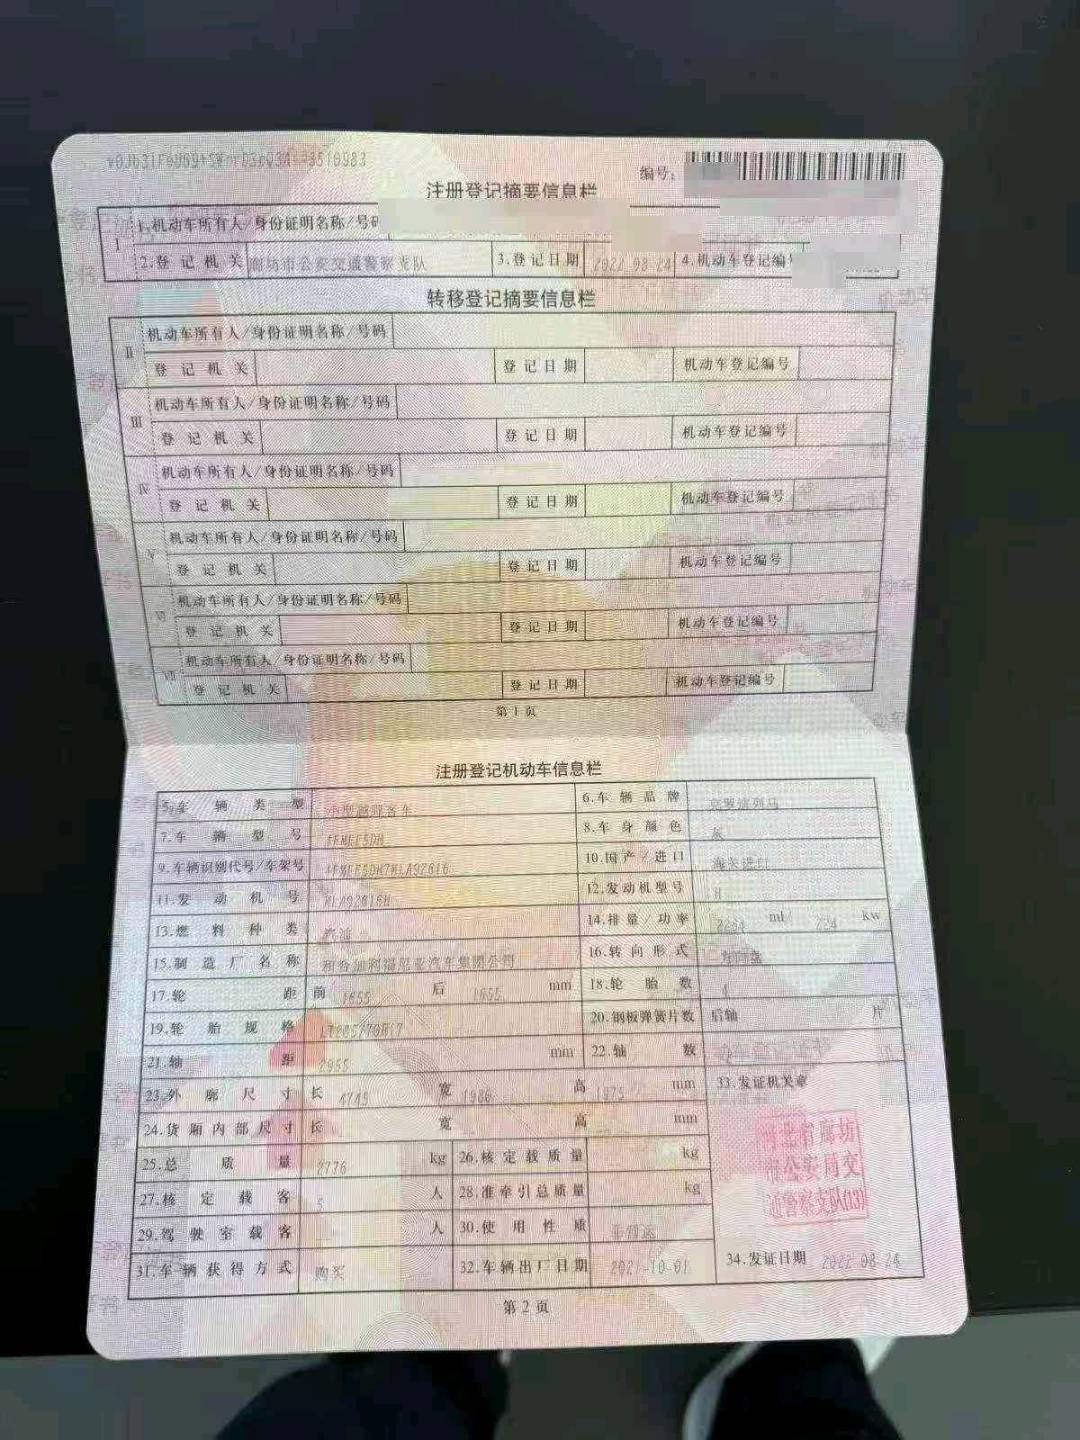 编号:
注册登记摘要信息栏
Ⅰ 1.机动车所有人/身份证明名称/号码
2.登记机关 廊坊市公安交通警察支队 3.登记日期 2022-08-24 4.机动车登记编号
转移登记摘要信息栏
Ⅱ 机动车所有人/身份证明名称/号码
登记机关 登记日期 机动车登记编号
Ⅲ 机动车所有人/身份证明名称/号码
登记机关 登记日期 机动车登记编号
Ⅳ 机动车所有人/身份证明名称/号码
登记机关 登记日期 机动车登记编号
Ⅴ 机动车所有人/身份证明名称/号码
登记机关 登记日期 机动车登记编号
Ⅵ 机动车所有人/身份证明名称/号码
登记机关 登记日期 机动车登记编号
Ⅶ 机动车所有人/身份证明名称/号码
登记机关 登记日期 机动车登记编号
第1页
注册登记机动车信息栏
5.车辆类型 小型越野客车 6.车辆品牌
7.车辆型号 8.车身颜色 灰
9.车辆识别代号/车架号 10.国产/进口 海关进口
11.发动机号 12.发动机型号 H
13.燃料种类 汽油 14.排量/功率 ml/ 224 kw
15.制造厂名称 16.转向形式 方向盘
17.轮距 前 1655 后 1655 mm 18.轮胎数 4
19.轮胎规格 20.钢板弹簧片数 后轴 片
21.轴距 2955 mm 22.轴数
23.外廓尺寸 长 4745 宽 1980 高 1975 mm 33.发证机关章
24.货厢内部尺寸 长 宽 高 mm
河北省廊坊
市公安局交
通警察支队(13)
25.总质量 2776 kg 26.核定载质量 kg
27.核定载客 5 人 28.准牵引总质量 kg
29.驾驶室载客 人 30.使用性质 非营运
31.车辆获得方式 购买 32.车辆出厂日期 2021-10-01 34.发证日期 2022-08-24
第2页